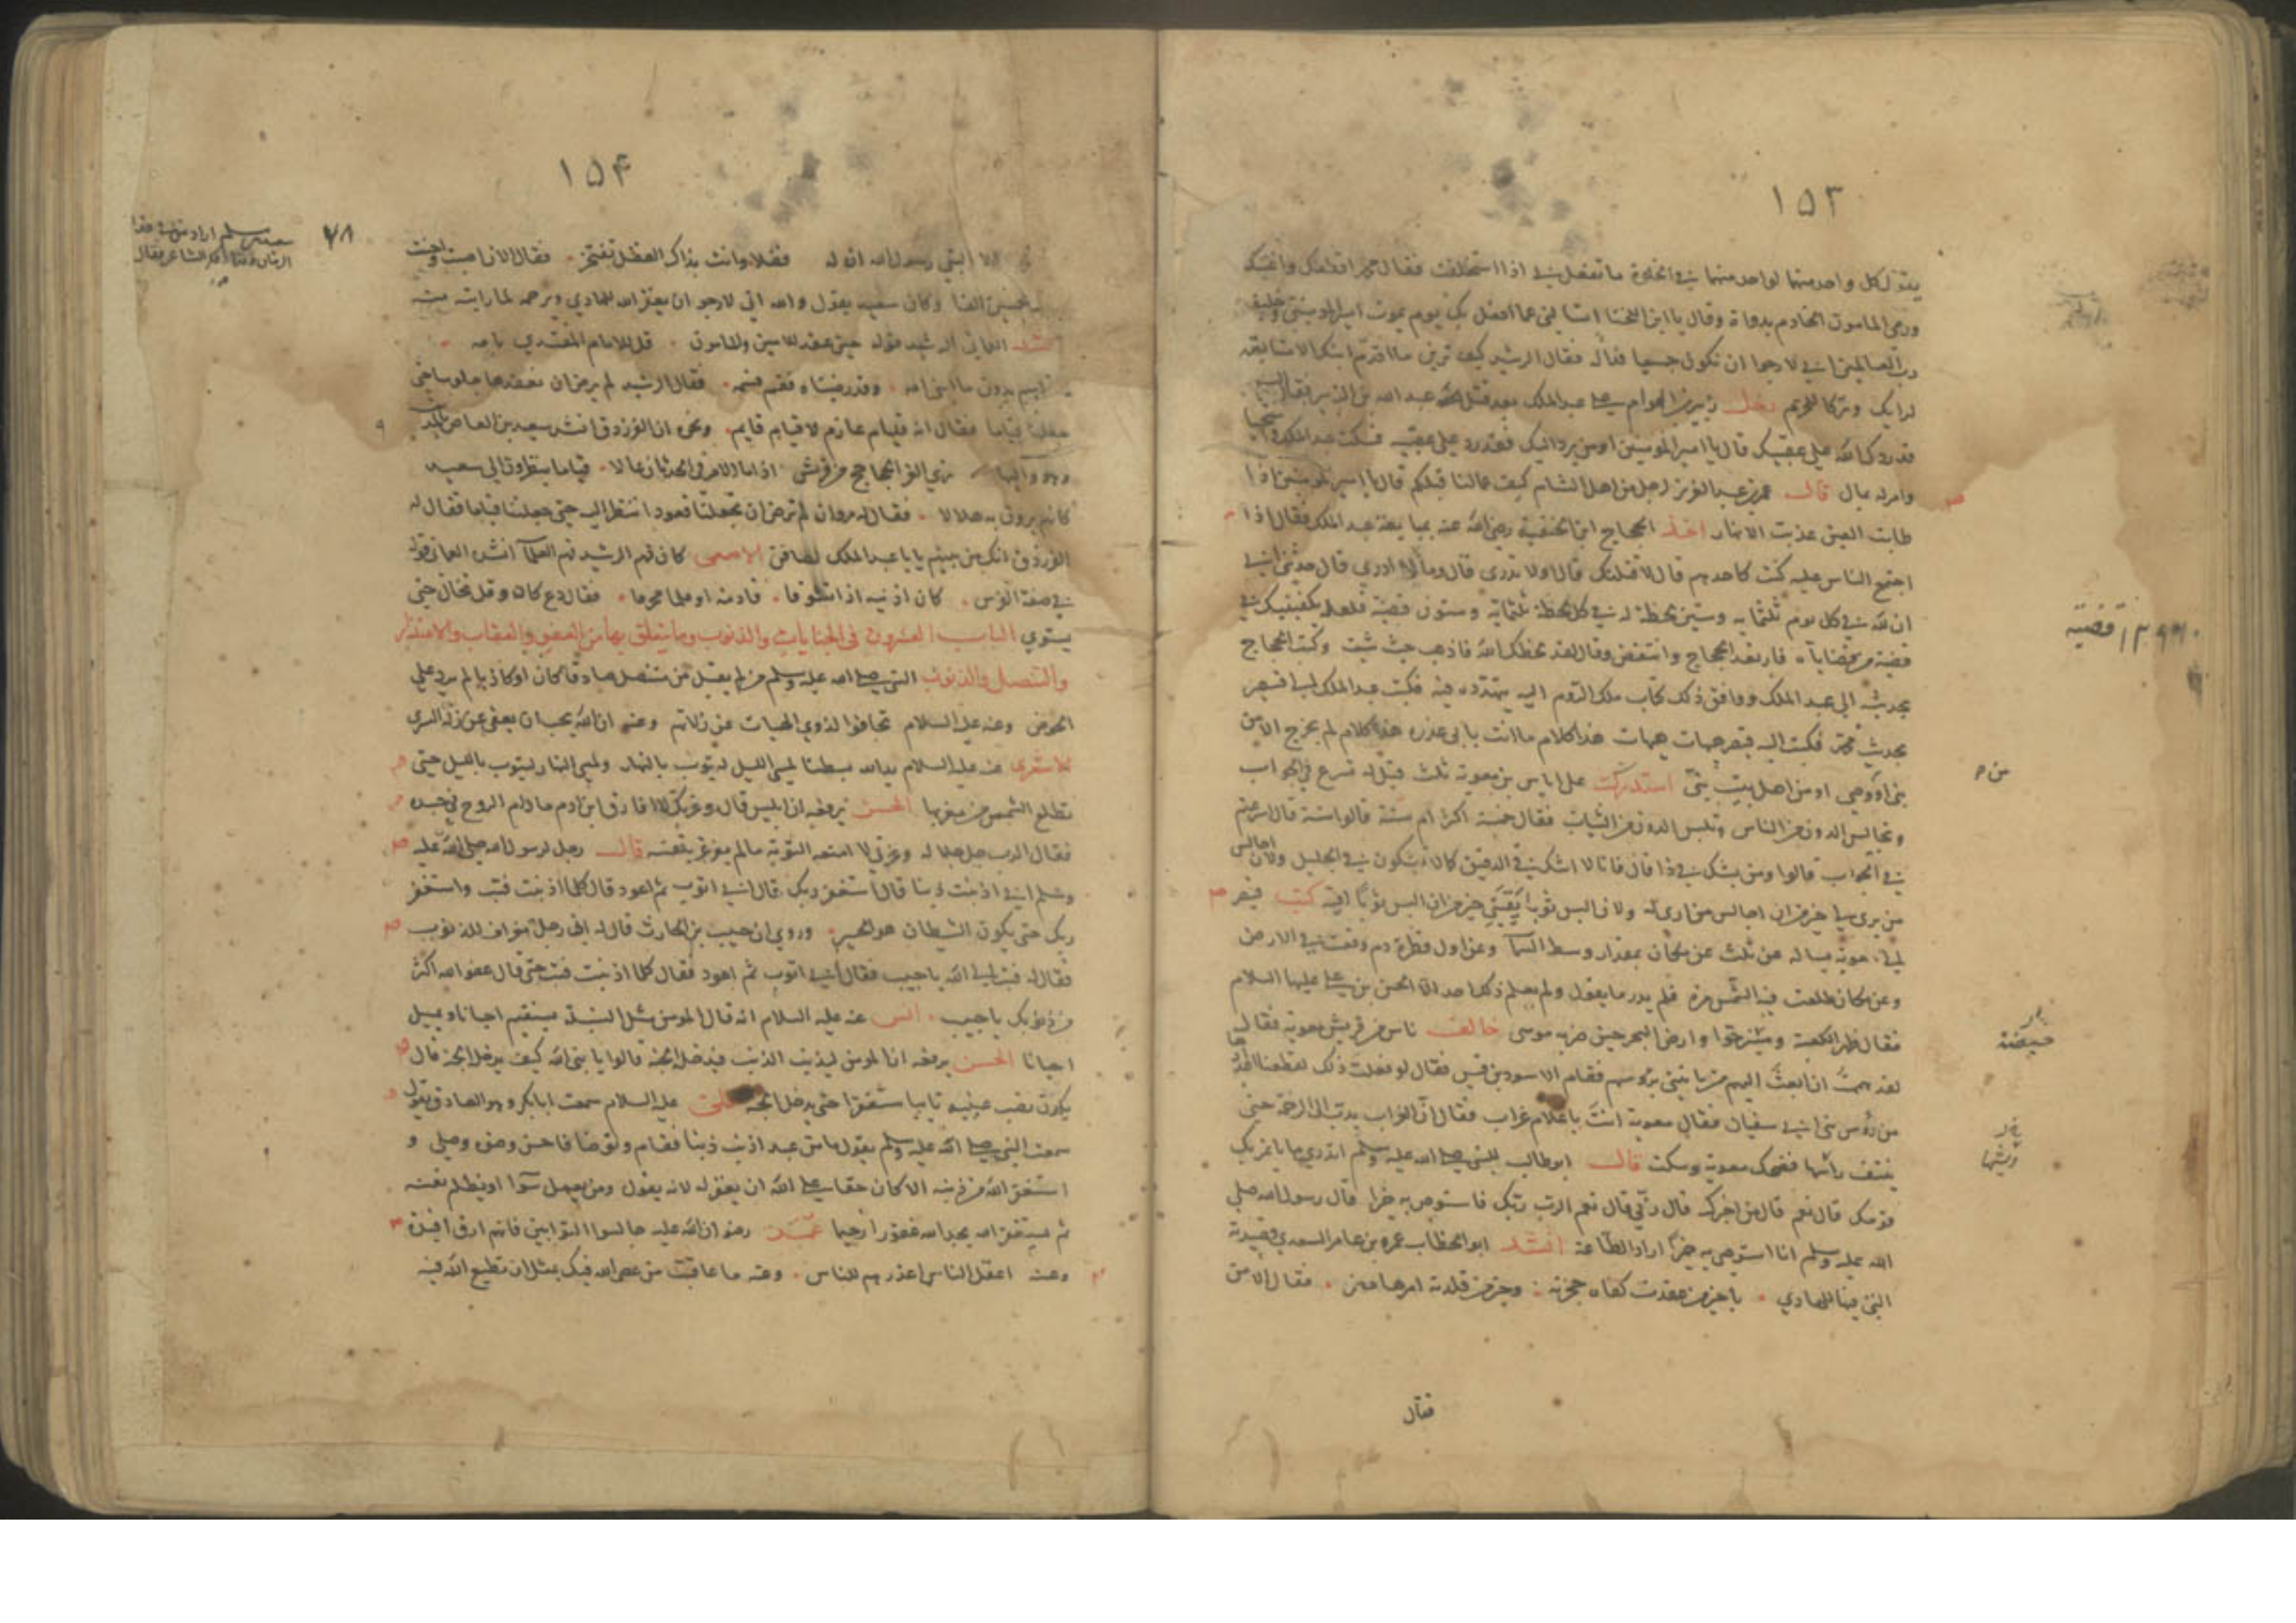 ١٥٣
يقول لكل واحد منهما لواحد منهما في الخلوة ما تفعل بي اذا استخلفت فقال محمد اقطعك واغنيك
ورمى المامون الخادم بدواة وقال يا ابن اللخنا اتسالني عما افعل بك يوم يموت امير المومنين وخليفة
رب العالمين اني لارجو ان نكون جميعا فداله فقال الرشيد كيف ترين ما اقدم ابنك الا متابعة
لرايك وتركا للحزم دخل بن العوام على عبد الملك بعد قتل عبد الله بن الزبير فقال
قد ردك الله على عقبيك قال يا امير المومنين اومن يرد اليك فقد رد على عقبيه فسكت عبد الملك
وامر له بمال قال عمر بن عبد العزيز لرجل من اهل الشام كيف عمالنا قبلكم قال يا امير المومنين اذا
طابت العين عذبت الانهار اخذ الحجاج ابن الحنفية رضي الله عنه بمبايعة عبد الملك فقال اذا
اجتمع الناس عليه كنت كاحدهم قال لاقتلنك قال اولا تدري قال وما لا ادري قال حدثني ابي
ان لله في كل يوم ثلثماية وستين لحظة له في كل لحظة ثلثماية وستون قضية فلعله يكفينيك في
قضية من قضاياه فارتعد الحجاج وانتفض وقال لقد لحظك الله فاذهب حيث شئت وكتب الحجاج
بحديثه الى عبد الملك ووافق ذلك كتاب ملك الروم اليه يتهدده فيه فكتب عبد الملك الى قيصر
بحديث محمد فكتب اليه قيصر هيهات هيهات هذا كلام ما انت بابي عذره هذا كلام لم يخرج الا من
نبي او وصي او من اهل بيت نبي استدركت على اياس بن معوية ثلث قيل له تسرع في الجواب
وتجالس الدون من الناس وتلبس الدون من الثياب فقال خمسة اكثر ام ستة قالوا ستة قال اسرعتم
في الجواب قالوا ومن يشك في ذا قال فانا لا اشك في الدقيق كما لا تشكون في الجليل ولان اجالس
من يرى لي خير من ان اجالس من ارى له ولان البس ثوبا يقيني خير من ان البس ثوبا اقيه كتب قيصر
الى معوية يساله عن ثلث عن مكان بمقدار وسط السما وعن اول قطرة دم وقعت في الارض
وعن مكان طلعت فيه الشمس مرة فلم يدر ما يقول ولم يعلم ذلك احد الا الحسن بن علي عليهما السلام
فقال ظهر الكعبة وحوا وارض البحر حين ضربه موسى خالف ناس من قريش معوية فقال
لقد هممت ان ابعث اليهم من ياتيني برؤسهم فقام الاسود بن قيس فقال لو فعلت ذلك لقطعنا
من رؤس بني ابي سفيان فقال معوية انت يا غلام غراب فقال ان الغراب يدب الى الرخمة حتى
ينتف راسها فضحك معوية وسكت قال ابو طالب للنبي صلى الله عليه وسلم اتدري ما ياتمر بك
قومك قال نعم قال من اخبرك قال ربي قال نعم الرب ربك فاستوص به خيرا قال رسول الله صلى
الله عليه وسلم انا استوصي به خيرا اراد الطاعة انشد ابو الخطاب عمرو بن عامر السعدي قصيدته
التي فيها للهادي يا خير من عقدت كفاه حجزته وخير من قلدته امرها مضر فقال الا من
قضية
من
حيضة
ريشها
فقال
١٥٤
٧٨
فقال الان اصبت واحسنت
وكان سعيد يقول والله اني لارجو ان يغفر الله للهادي ويرحمه لما رايت منه
انشد العماني الرشيد قوله حين عقد للامين وللمامون قل للامام المقتدي بامه
ما قاسم بدون ما ابن امه وقد رضيناه فقم فسمه فقال الرشيد لم يرض ان نعقدها جلوسا حتى
جعلنا قياما فقال انه قيام عازم لا قيام قايم ونحوه ان الفرزدق انشد سعيد بن العاص بالمدينة
وهو واليها ترى الغر الجحاجح من قريش اذا ما الامر في الحدثان عالا قياما ينظرون الى سعيد
كانهم يرون به هلالا فقال له مروان لم ترض ان تجعلنا قعودا ننظر اليه حتى جعلتنا قياما فقال له
الفرزدق انك من بينهم يا با عبد الملك لصافن الاصمعي كان فهم الرشيد فهم العلما انشده العماني قوله
في صفة الفرس كان اذنيه اذا تشوفا قادمة او قلما محرفا فقال دع كان وقل تخال حتى
يستوي الباب العشرون في الجنايات والذنوب وما يتعلق بها من العفو والعقاب والاعتذار
والتنصل والذنوب النبي صلى الله عليه وسلم من لم يقبل من متنصل صادقا كان او كاذبا لم يرد علي
الحوض وعنه عليه السلام تجافوا لذوي الهيات عن زلاتهم وعنه ان الله يحب ان يعفى عن زلة السري
الاشعري عنه عليه السلام يد الله مبسطتا لمسي الليل ليتوب بالنهار ولمسي النهار ليتوب بالليل حتى
تطلع الشمس من مغربها الحسن يرفعه ان ابليس قال وعزتك لا افارق ابن ادم ما دام الروح في جسده
فقال الرب جل جلاله وعزتي لا امنعه التوبة ما لم يغرغر بنفسه قال رجل لرسول الله صلى الله عليه
وسلم اني اذنبت ذنبا قال استغفر ربك قال اني اتوب ثم اعود قال كلما اذنبت فتب واستغفر
ربك حتى يكون الشيطان هو الحسير وروي ان حبيب بن الحارث قال له اني رجل مقراف للذنوب
فقال له فتب الى الله يا حبيب فقال اني اتوب ثم اعود فقال كلما اذنبت فتب حتى قال عفو الله اكثر
من ذنوبك يا حبيب انس عنه عليه السلام انه قال المومن مثل السنبلة يستقيم احيانا ويميل
احيانا الحسن يرفعه ان المومن ليذنب الذنب فيدخل الجنة قالوا يا نبي الله كيف يدخل الجنة قال
يكون نصب عينيه تايبا مستغفرا حتى يدخل الجنة علي عليه السلام سمعت ابا بكر وهو الصادق يقول
سمعت النبي صلى الله عليه وسلم يقول ما من عبد اذنب ذنبا فقام وتوضا فاحسن وضوه وصلى و
استغفر الله من ذنبه الا كان حقا على الله ان يغفر له لانه يقول ومن يعمل سوا او يظلم نفسه
ثم يستغفر الله يجد الله غفورا رحيما عمر رضوان الله عليه جالسوا التوابين فانهم ارق افيدة
وعنه اعقل الناس اعذرهم للناس وعنه ما عاقبت من عصى الله فيك بمثل ان تطيع الله فيه